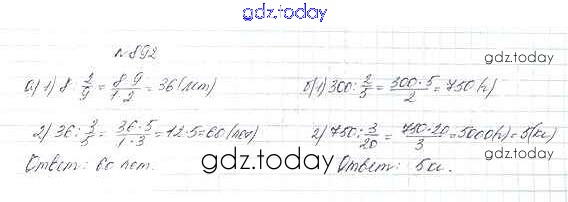 gdz.today
№892
а) 1) 8 : 2/9 = 8·9/1·2 = 36 (лет)
2) 36 : 3/5 = 36·5/1·3 = 12·5 = 60 (лет)
Ответ: 60 лет.
б) 1) 300 : 2/5 = 300·5/2 = 750 (г)
2) 750 : 3/20 = 750·20/3 = 5000 (г) = 5 (кг)
Ответ: 5 кг.
gdz.today
gdz.today
gdz.today